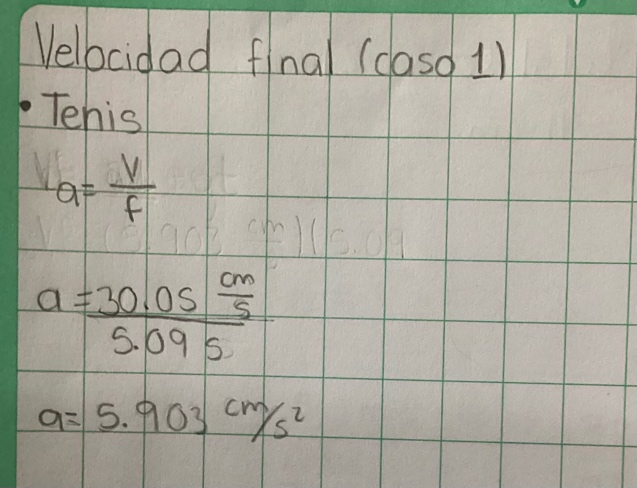 Velocidad final (caso 1)
• Tenis
a = V
f
a = 30.05 cm
s
5.09 s
a = 5.903 cm/s²